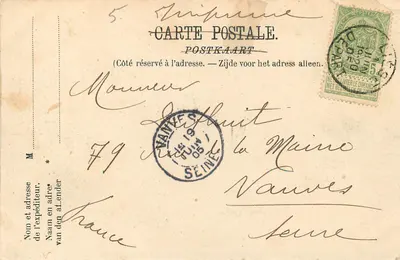 5. Imprimé
CARTE POSTALE.
POSTKAART
(Côté réservé à l'adresse. — Zijde voor het adress alleen.
Monsieur
79 Rue de la Maine
Vanves
Seine
France
VANVES
19
JUIN
05
SEINE
M
Nom et adresse
de l'expéditeur.
Naam en adres
van den afzender